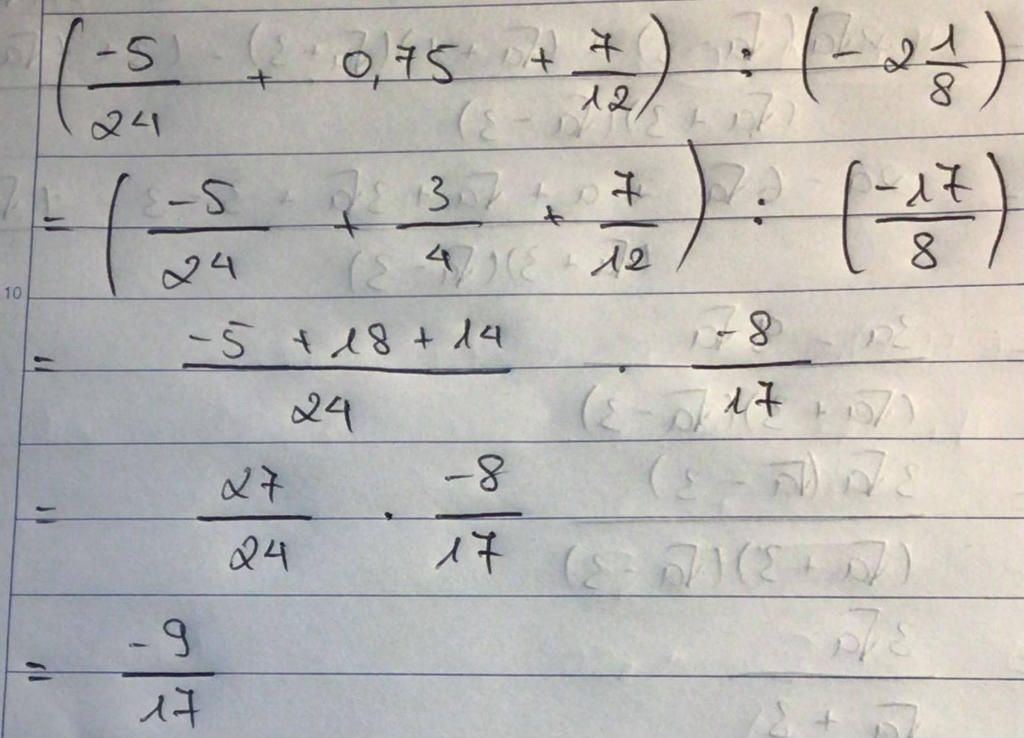 (-5/24 + 0,75 + 7/12) : (- 2 1/8)
= (-5/24 + 3/4 + 7/12) : (-17/8)
10
= (-5 + 18 + 14)/24 . -8/17
= 27/24 . -8/17
= -9/17